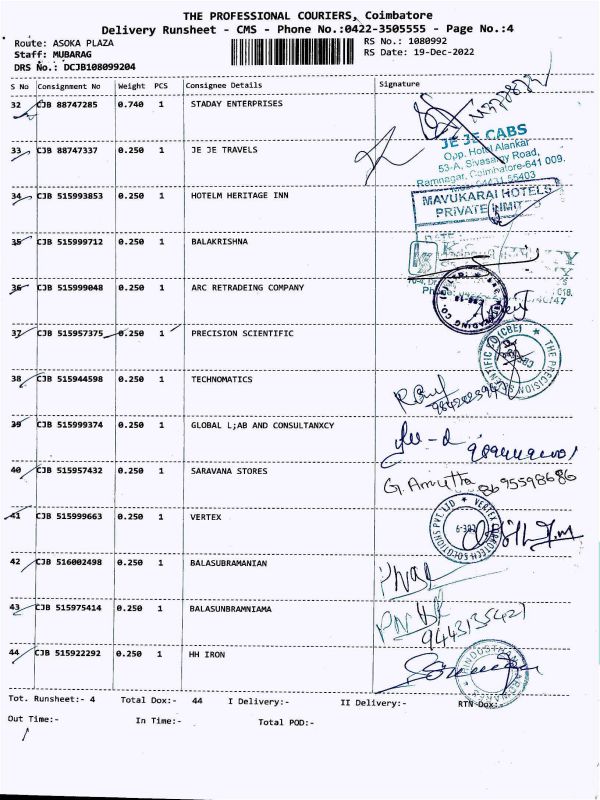 THE PROFESSIONAL COURIERS, Coimbatore
Delivery Runsheet - CMS - Phone No.:0422-3505555 - Page No.:4
Route: ASOKA PLAZA RS No.: 1080992
Staff: MUBARAG RS Date: 19-Dec-2022
DRS No.: DCJB108099204
S No Consignment No Weight PCS Consignee Details Signature
32 CJB 88747285 0.740 1 STADAY ENTERPRISES
33 CJB 88747337 0.250 1 JE JE TRAVELS
JE JE CABS
Opp. Hotel Alankar
53-A, Sivasamy Road,
Ramnagar, Coimbatore-641 009.
34 CJB 515993853 0.250 1 HOTELM HERITAGE INN
MAVUKARAI HOTELS
PRIVATE LIMIT
35 CJB 515999712 0.250 1 BALAKRISHNA
36 CJB 515999048 0.250 1 ARC RETRADEING COMPANY
37 CJB 515957375 0.250 1 PRECISION SCIENTIFIC
THE PRECISION SCIENTIFIC CO (CBE)
38 CJB 515944598 0.250 1 TECHNOMATICS
39 CJB 515999374 0.250 1 GLOBAL L;AB AND CONSULTANXCY
40 CJB 515957432 0.250 1 SARAVANA STORES
G. Amutha 8695598686
41 CJB 515999663 0.250 1 VERTEX
42 CJB 516002498 0.250 1 BALASUBRAMANIAN
43 CJB 515975414 0.250 1 BALASUBRAMNIAMA
9443135421
44 CJB 515922292 0.250 1 HH IRON
Tot. Runsheet:- 4 Total Dox:- 44 I Delivery:- II Delivery:- RTN Dox:-
Out Time:- In Time:- Total POD:-